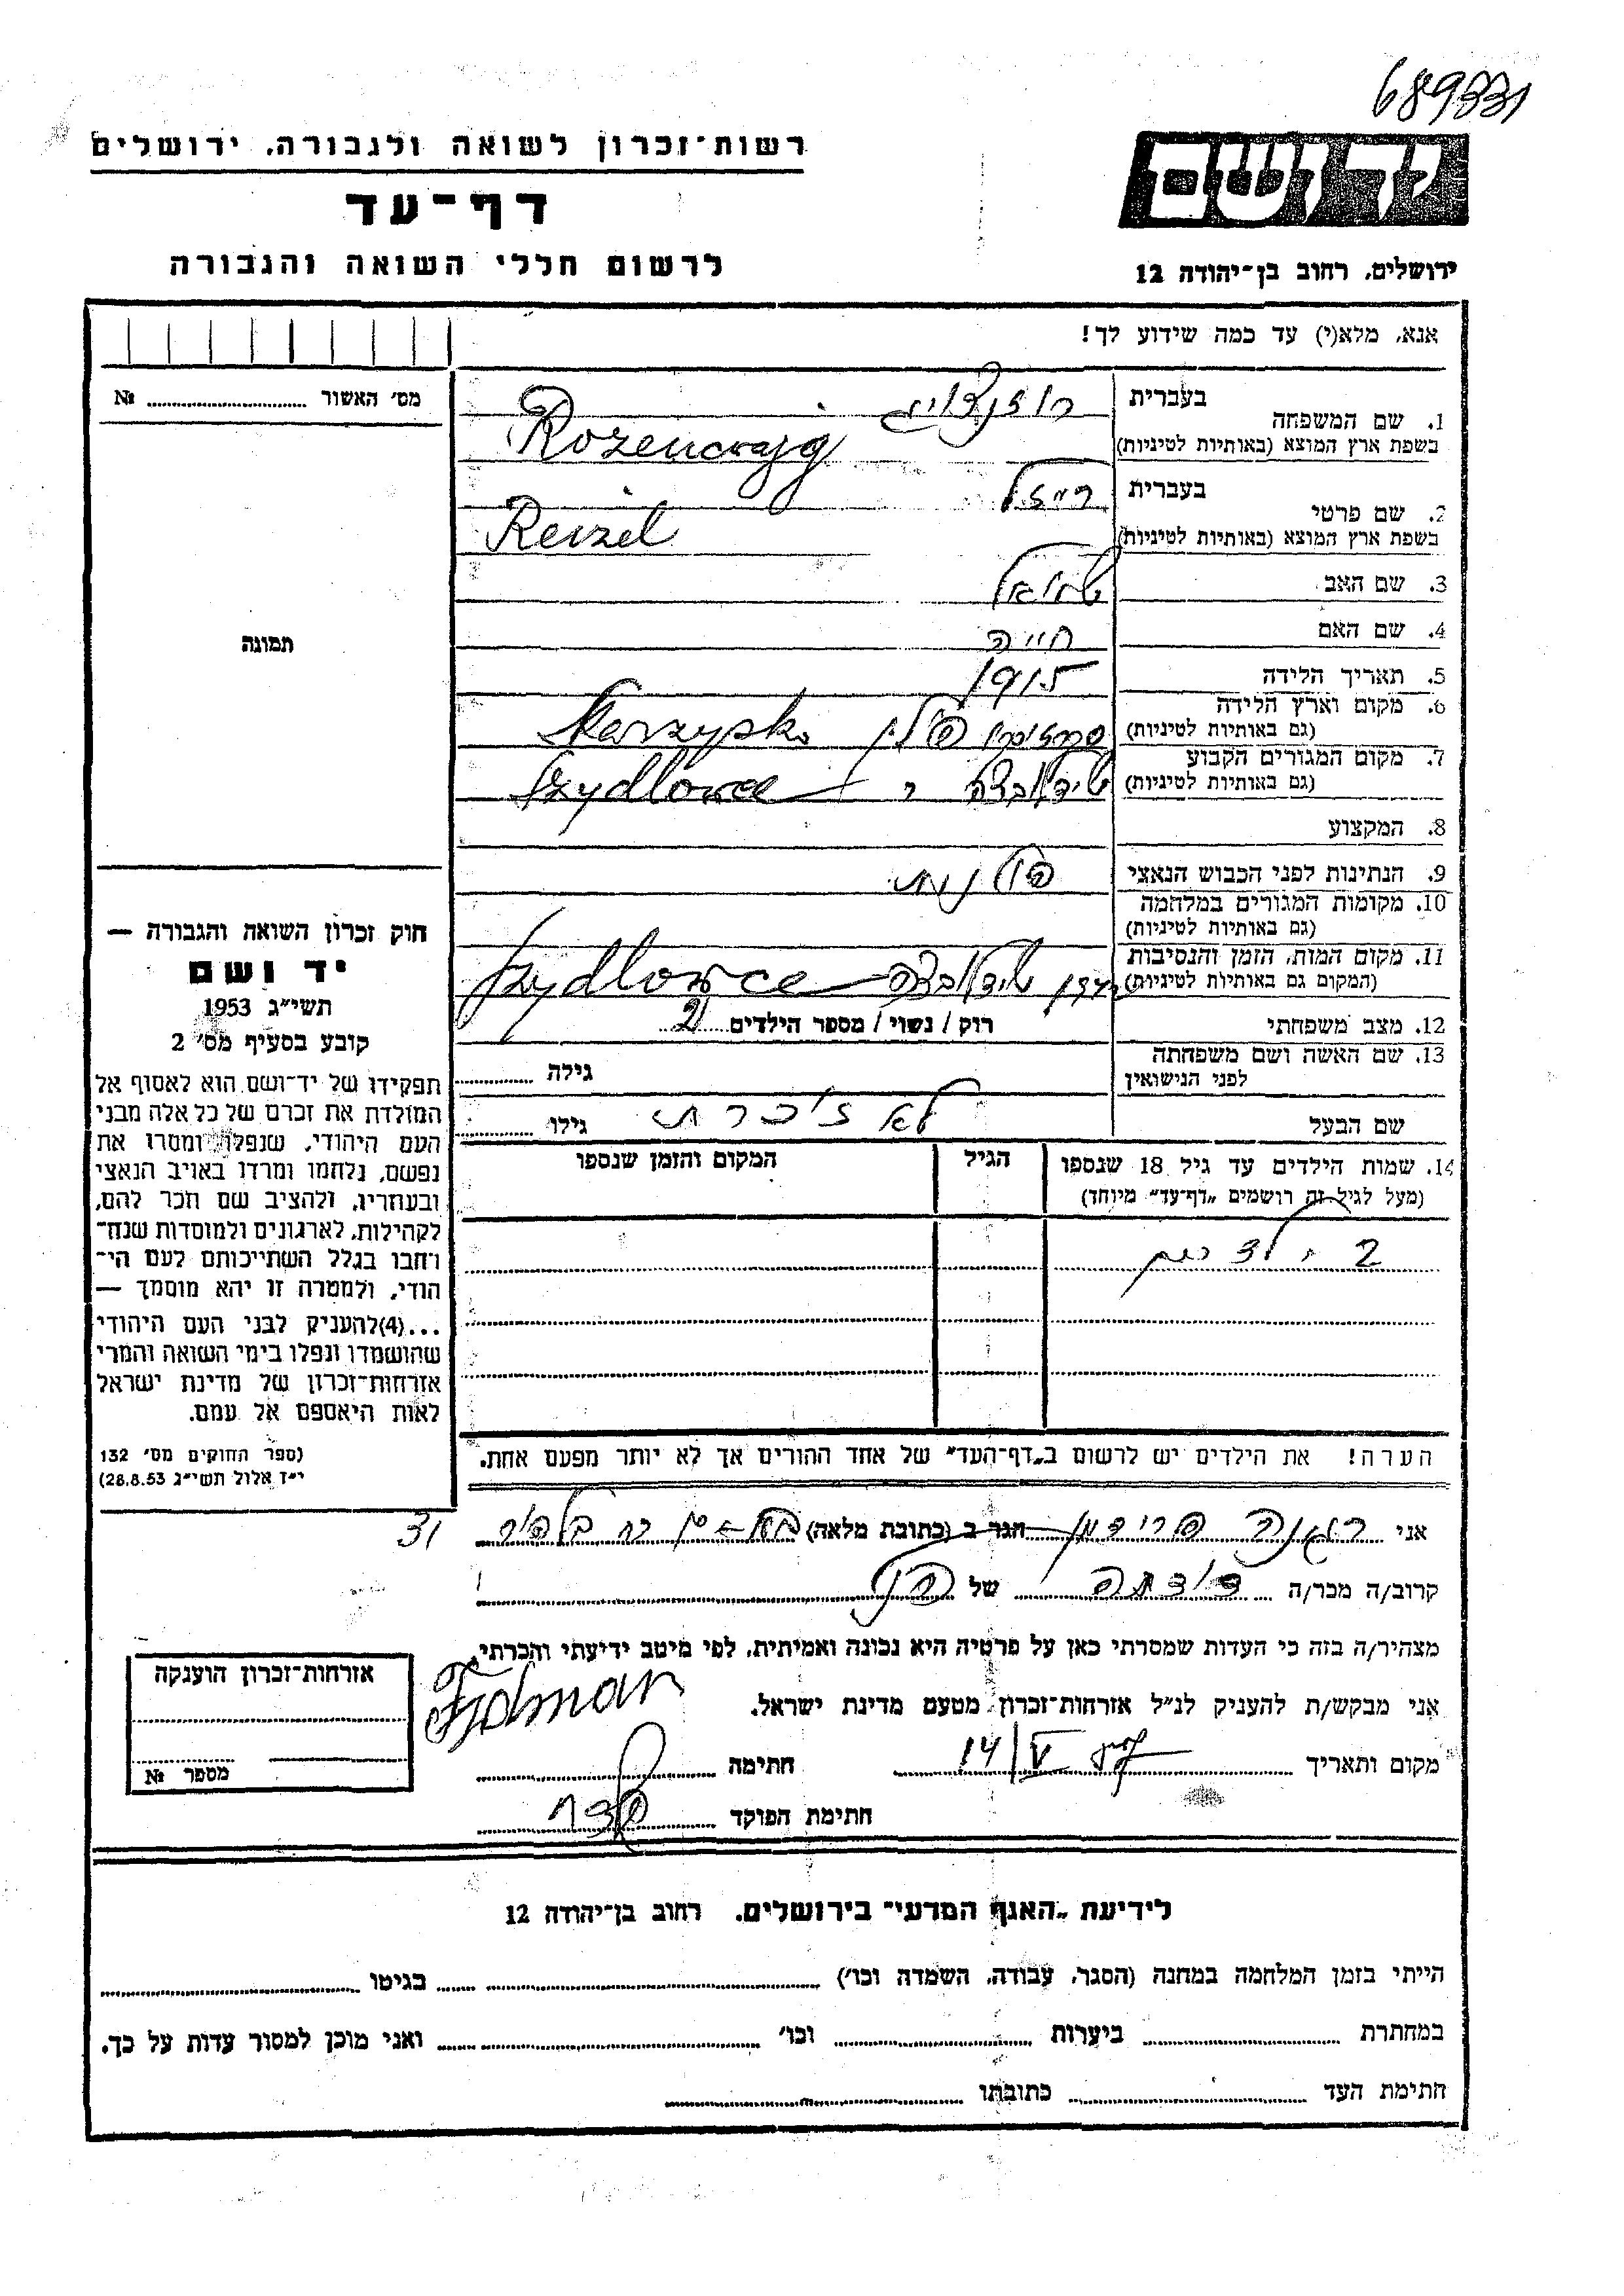 689331
יד ושם
רשות־זכרון לשואה ולגבורה, ירושלים
דף־עד
לרשום חללי השואה והגבורה
ירושלים, רחוב בן־יהודה 12
אנא, מלא(י) עד כמה שידוע לך!
מס' האשור № ............
תמונה
1. שם המשפחה
בעברית
רוזנצוויג
בשפת ארץ המוצא (באותיות לטיניות)
Rozencwajg
2. שם פרטי
בעברית
רייזל
בשפת ארץ המוצא (באותיות לטיניות)
Reizel
3. שם האב
שמואל
4. שם האם
חייה
5. תאריך הלידה 1915
6. מקום וארץ הלידה
(גם באותיות לטיניות)
פולין
7. מקום המגורים הקבוע
(גם באותיות לטיניות)
שידלובצה Szydlowce
8. המקצוע
9. הנתינות לפני הכבוש הנאצי
פולנית
10. מקומות המגורים במלחמה
(גם באותיות לטיניות)
11. מקום המות, הזמן והנסיבות
(המקום גם באותיות לטיניות)
שידלובצה Szydlowce
12. מצב משפחתי
רוק / נשוי / מספר הילדים 2
13. שם האשה ושם משפחתה
לפני הנישואין
גילה ............
שם הבעל לא זוכרת גילו ............
14. שמות הילדים עד גיל 18 שנספו
(מעל לגיל זה רושמים „דף־עד" מיוחד)
הגיל
המקום והזמן שנספו
2 ילדים
הערה! את הילדים יש לרשום ב„דף־העד" של אחד ההורים אך לא יותר מפעם אחת.
חוק זכרון השואה והגבורה —
יד ושם
תשי"ג 1953
קובע בסעיף מס' 2
תפקידו של יד־ושם הוא לאסוף אל
המולדת את זכרם של כל אלה מבני
העם היהודי, שנפלו ומסרו את
נפשם, נלחמו ומרדו באויב הנאצי
ובעוזריו, ולהציב שם וזכר להם,
לקהילות, לארגונים ולמוסדות שנח־
רבו בגלל השתייכותם לעם הי־
הודי, ולמטרה זו יהא מוסמך —
...(4) להעניק לבני העם היהודי
שהושמדו ונפלו בימי השואה והמרי
אזרחות־זכרון של מדינת ישראל
לאות היאספם אל עמם.
(ספר החוקים מס' 132
י"ז אלול תשי"ג 28.8.53)
אני פרידמן הגר ב (כתובת מלאה) 31
קרוב/ה מכר/ה דודתה של
מצהיר/ה בזה כי העדות שמסרתי כאן על פרטיה היא נכונה ואמיתית, לפי מיטב ידיעתי והכרתי.
אני מבקש/ת להעניק לנ"ל אזרחות־זכרון מטעם מדינת ישראל.
מקום ותאריך 14/V חתימה
חתימת הפוקד
אזרחות־זכרון הוענקה
מספר №
לידיעת „האגף המדעי" בירושלים, רחוב בן־יהודה 12
הייתי בזמן המלחמה במחנה (הסגר, עבודה, השמדה וכו') ............ בגיטו ............
במחתרת ............ ביערות ............ וכו' ............ ואני מוכן למסור עדות על כך.
חתימת העד ............ כתובתו ............